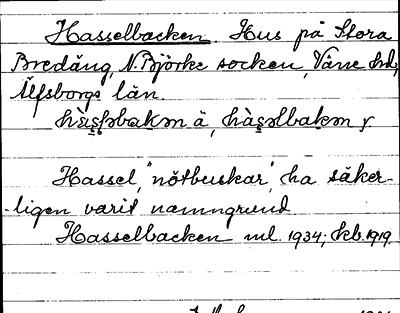 Hasselbacken Hus på Stora
Bredäng, N. Björke socken, Väne hd,
Älfsborgs län.
Hassel, "nötbuskar", ha säker-
ligen varit namngrund
Hasselbacken ml. 1934; kb. 1919.